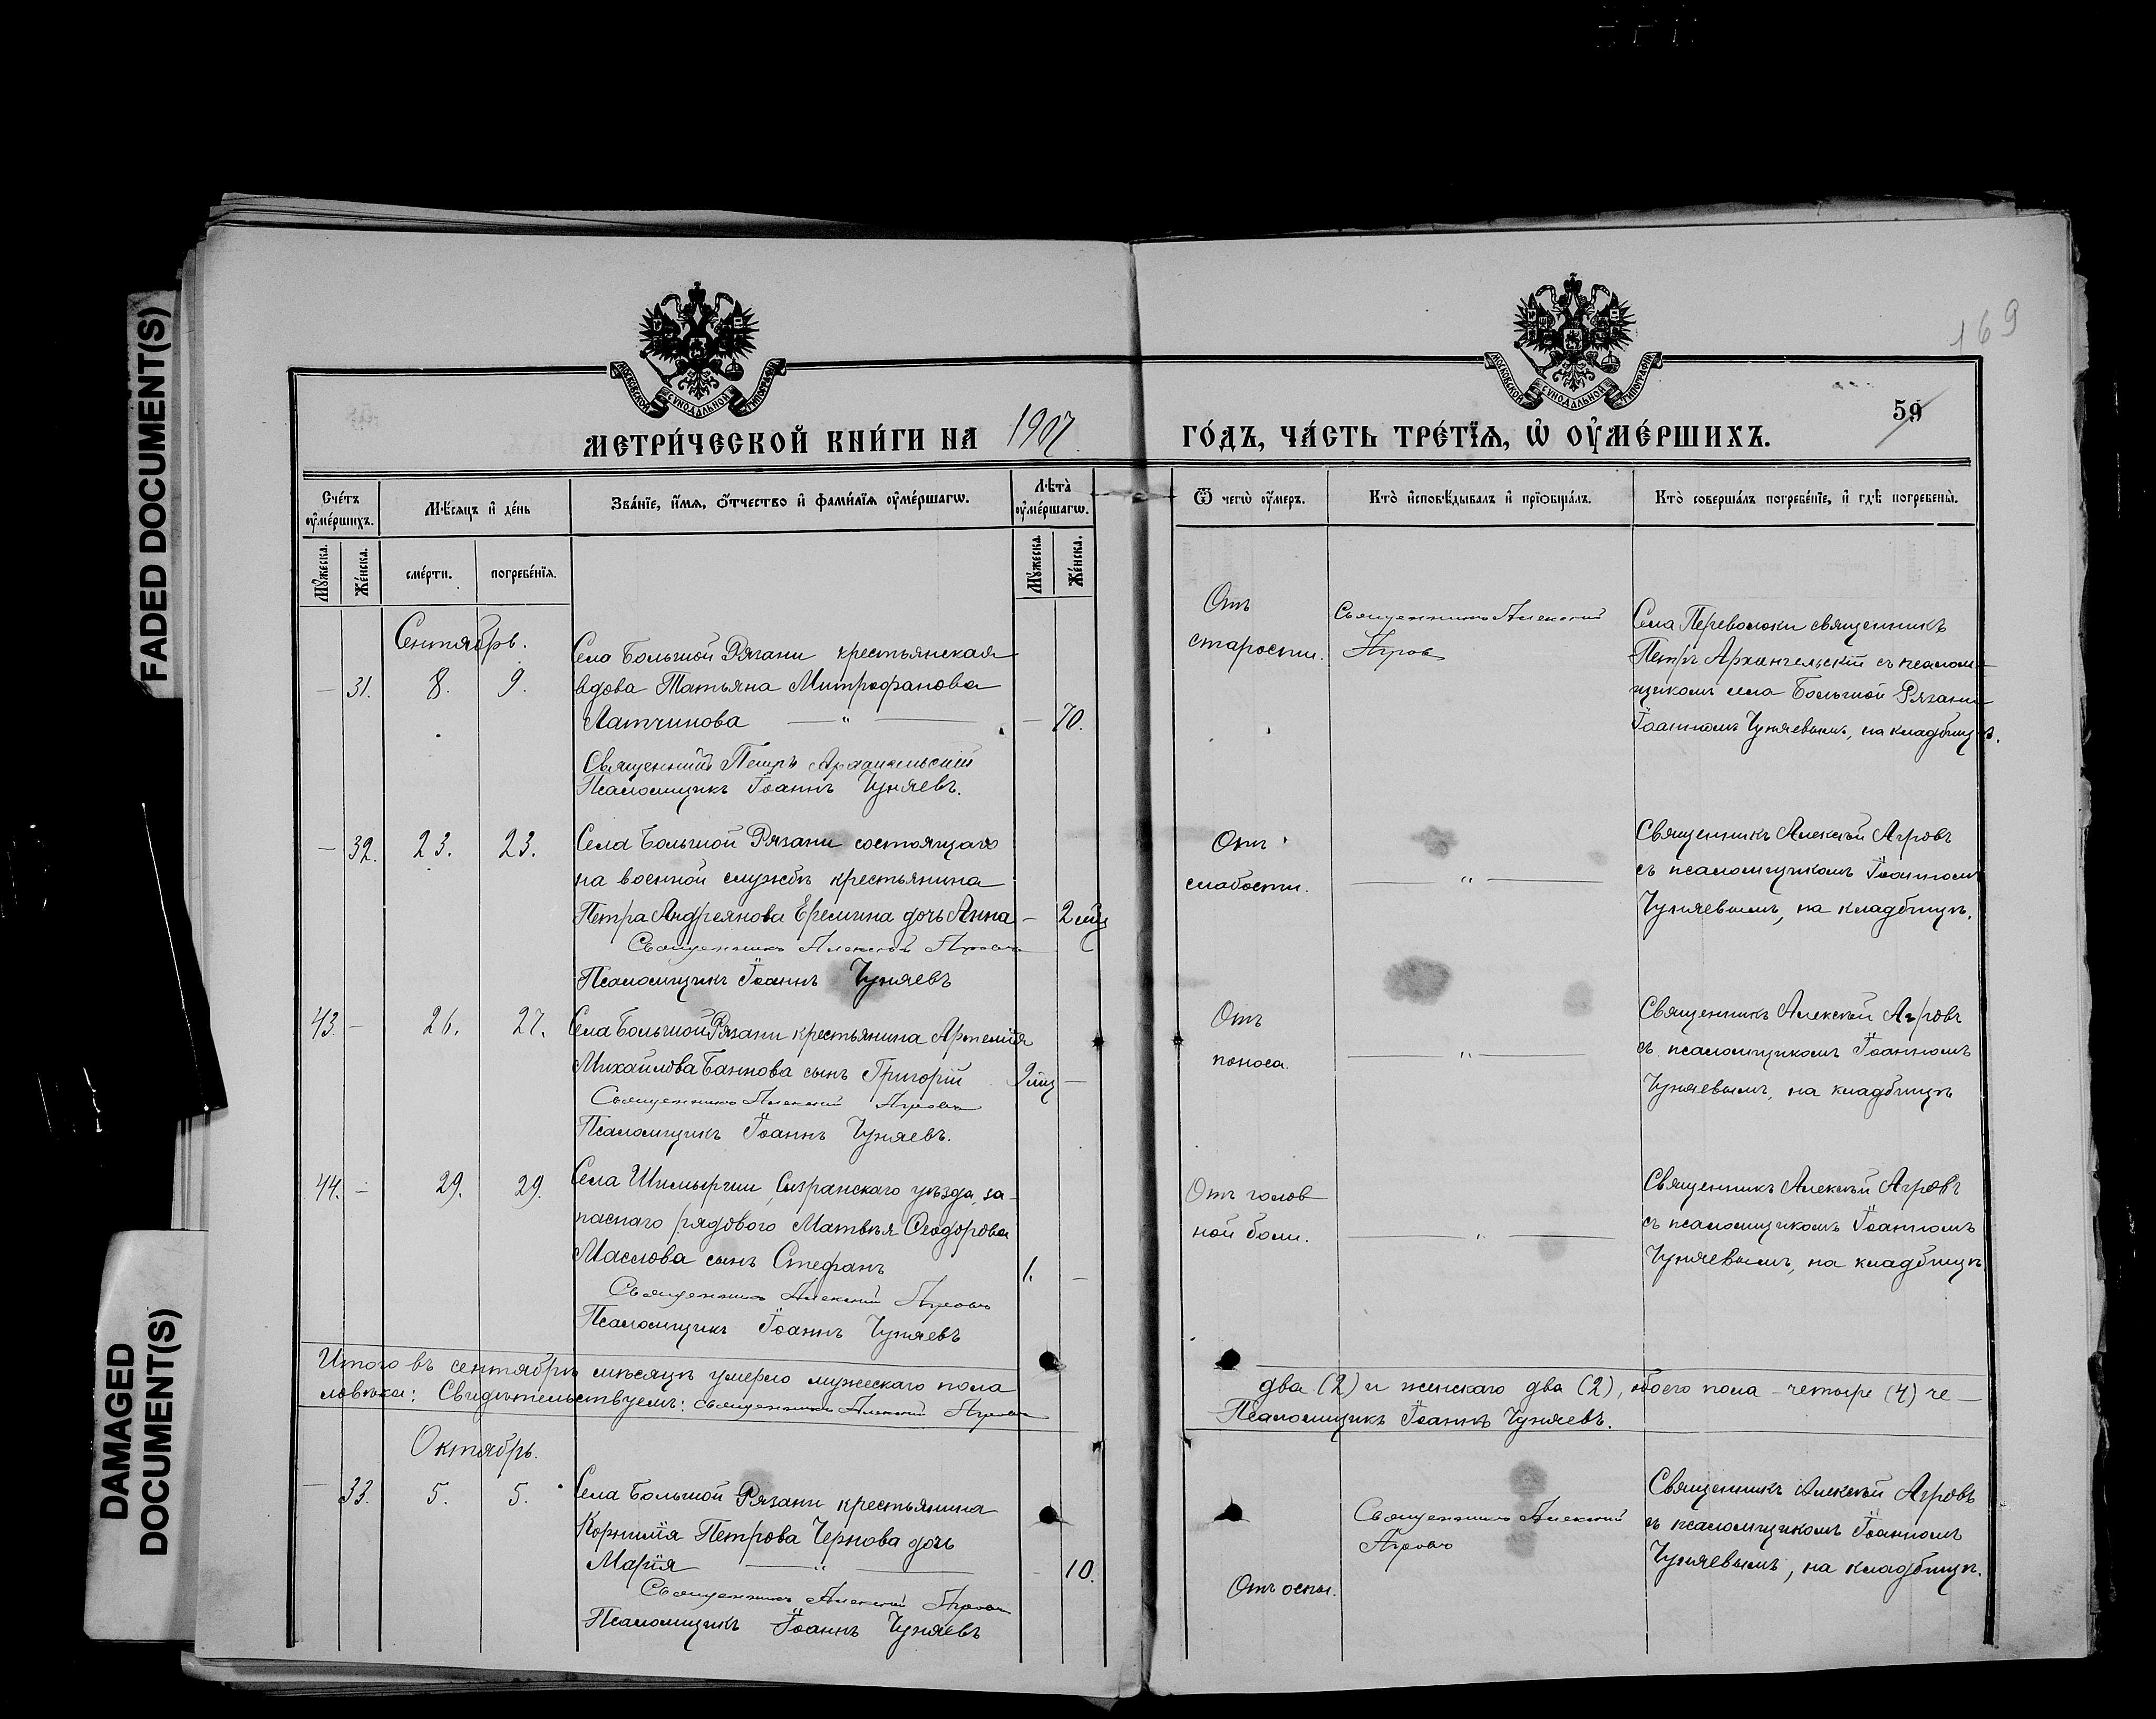 FADED DOCUMENT(S)
DAMAGED
DOCUMENT(S)
169
59
МОСКОВСКОЙ СѴНОДАЛЬНОЙ ТИПОГРАФІИ
МОСКОВСКОЙ СѴНОДАЛЬНОЙ ТИПОГРАФІИ
МЕТРИ́ЧЕСКОЙ КНИ́ГИ НА 1907 ГО́ДЪ, ЧА́СТЬ ТРЕ́ТЇѦ, Ѡ҆ ОУ҆МЕ́РШИХЪ.
Сче́тъ оу҆ме́ршихъ.
Мꙋ́жеска.
Же́нска.
Мѣ́сѧцъ и҆ де́нь
сме́рти.
погребе́нїѧ.
Зва́нїе, и҆́мѧ, ѻ҆́тчество и҆ фами́лїѧ оу҆ме́ршагѡ.
Лѣ́та оу҆ме́ршагѡ.
Мꙋ́жеска.
Же́нска.
Ѿ чегѡ̀ оу҆́меръ.
Кто̀ и҆сповѣ́дывалъ и҆ прїѡбща́лъ.
Кто̀ соверша́лъ погребе́нїе, и҆ гдѣ̀ погребены̀.
Сентябрь.
— 31. 8. 9.
Села Большой Рязани крестьянская
вдова Татьяна Митрофанова
Латчинова — " —
— 70.
Священникъ Петръ Архангельскій
Псаломщикъ Іоаннъ Чуняевъ.
Отъ
старости.
Священникъ Алексій
Агровъ
Села Переволоки священникъ
Петръ Архангельскій съ псалом-
щикомъ села Большой Рязани
Іоанномъ Чуняевымъ, на кладбищѣ.
— 32. 23. 23.
Села Большой Рязани состоящаго
на военной службѣ крестьянина
Петра Андреянова Еремина дочь Анна
— 2 мѣц
Священникъ Алексій Агровъ
Псаломщикъ Іоаннъ Чуняевъ
Отъ
слабости.
— " —
Священникъ Алексѣй Агровъ
съ псаломщикомъ Іоанномъ
Чуняевымъ, на кладбищѣ.
43. — 26. 27.
Села Большой Рязани крестьянина Артемія
Михайлова Баннова сынъ Григорій
9 мѣц —
Священникъ Алексій Агровъ
Псаломщикъ Іоаннъ Чуняевъ.
Отъ
поноса.
— " —
Священникъ Алексѣй Агровъ
съ псаломщикомъ Іоанномъ
Чуняевымъ, на кладбищѣ
44. — 29. 29.
Села Сызранскаго уѣзда, за-
паснаго рядового Матвѣя Ѳеодорова
Маслова сынъ Стефанъ
1. —
Священникъ Алексій Агровъ
Псаломщикъ Іоаннъ Чуняевъ
Отъ голов
ной боли.
— " —
Священникъ Алексѣй Агровъ
съ псаломщикомъ Іоанномъ
Чуняевымъ, на кладбищѣ
Итого въ сентябрѣ мѣсяцѣ умерло мужескаго пола два (2) и женскаго два (2), обоего пола — четыре (4) че—
ловѣка: Свидѣтельствуемъ: Священникъ Алексій Агровъ Псаломщикъ Іоаннъ Чуняевъ.
Октябрь.
— 33. 5. 5.
Села Большой Рязани крестьянина
Корнилія Петрова Чернова дочь
Марія — " —
— 10.
Священникъ Алексій Агровъ
Псаломщикъ Іоаннъ Чуняевъ
Отъ оспы.
Священникъ Алексій
Агровъ
Священникъ Алексѣй Агровъ
съ псаломщикомъ Іоанномъ
Чуняевымъ, на кладбищѣ.